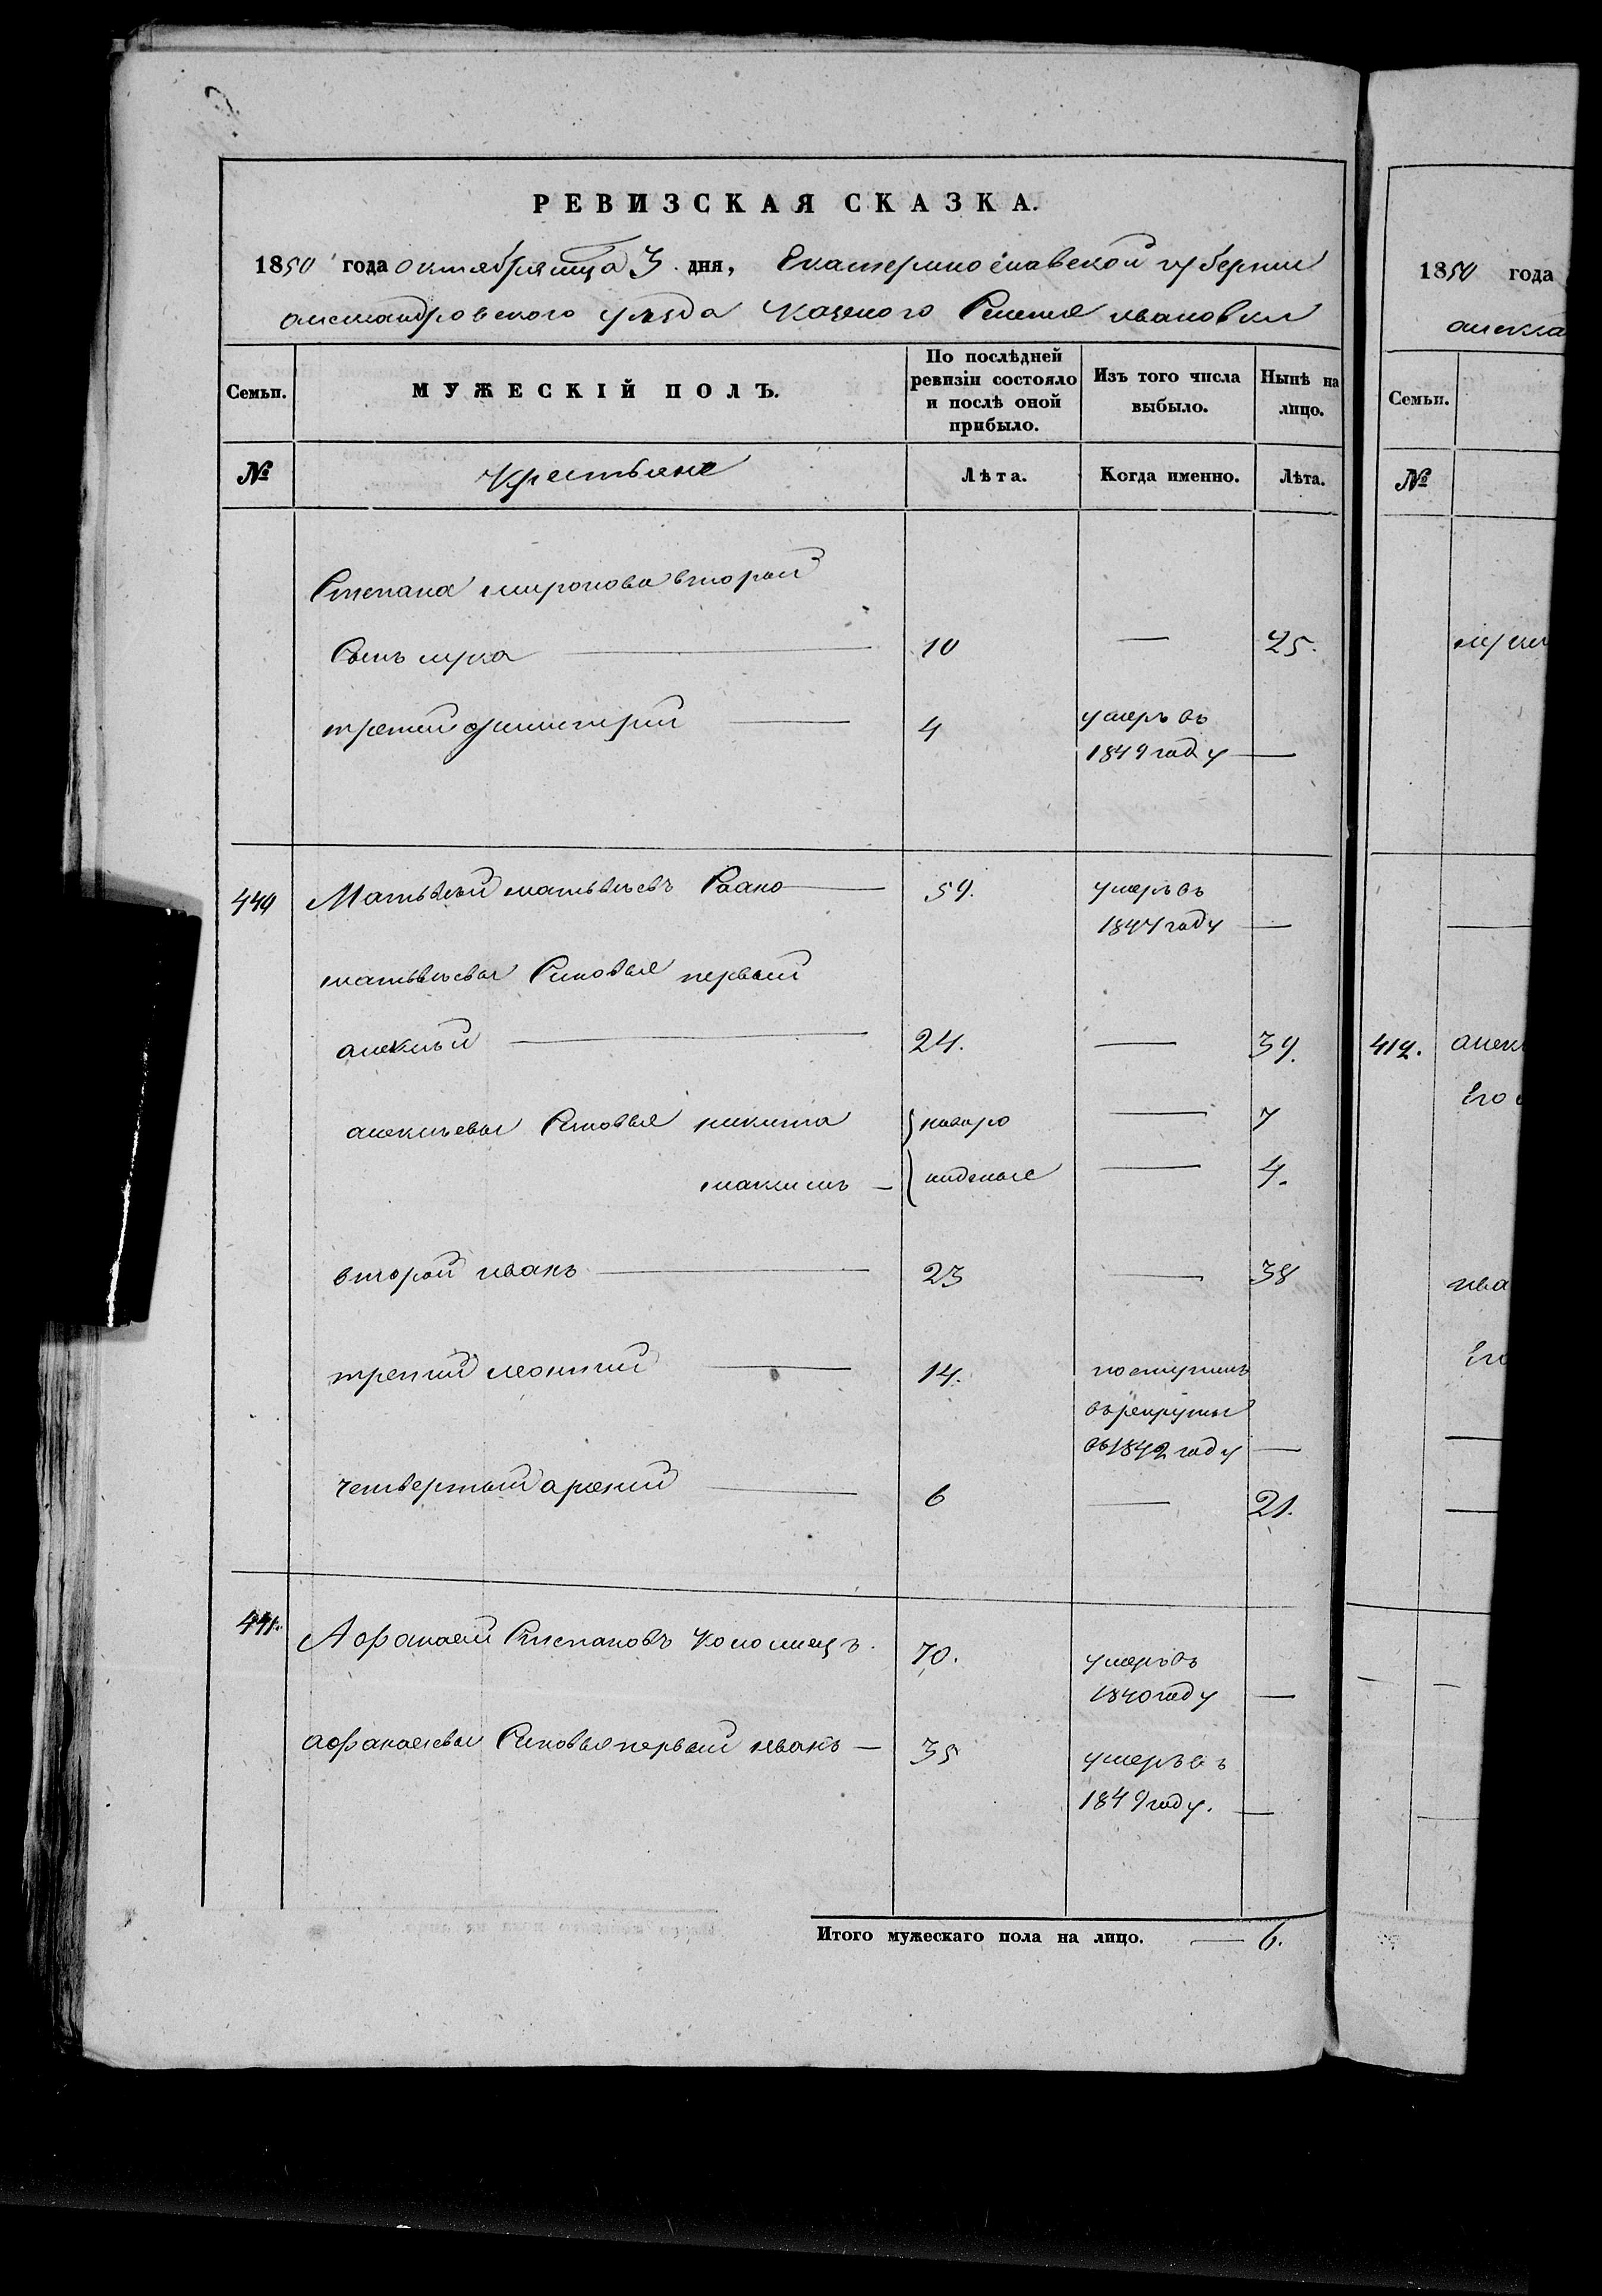 РЕВИЗСКАЯ СКАЗКА.
1850 года октября мца 3 дня, Екатеринославской губернии
александровского уезда казеного Селения ивановки
Семьи.
МУЖЕСКІЙ ПОЛЪ.
По послѣдней ревизіи состояло и послѣ оной прибыло.
Изъ того числа выбыло.
Нынѣ на лицо.
№
Крестьяне
Лѣта.
Когда именно.
Лѣта.
Степана миронова второй
Сынъ лука 10 — 25.
третий димитрий 4 умеръ въ
1849 году —
Матвѣй матвѣевъ 59. умеръ въ
1847 году —
матвѣевы Синовья первый
алексѣй 24. — 39.
алексѣевы Синовья никита новоро — 7
максимъ — жденые — 4.
второй иванъ 23 — 38
третий леонтий 14. поступилъ
въ рекруты
въ 1842 году —
четвертый арсений 6 — 21.
441. Афанасий Степановъ Коломиецъ. 70. умеръ въ
1840 году —
афанасиевы Синовья первый иванъ — 35 умеръ въ
1849 году. —
Итого мужескаго пола на лицо. — 6.
1850 года
алекса
Семьи.
№
412. алек
Его
ива
Его